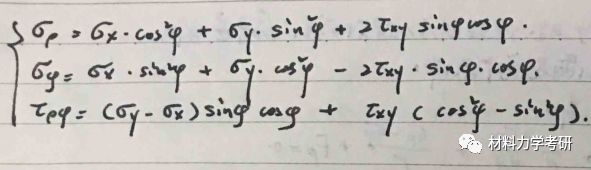 σρ = σx · cos²φ + σy · sin²φ + 2τxy sinφcosφ.
σφ = σx · sin²φ + σy · cos²φ − 2τxy · sinφ · cosφ.
τρφ = (σy − σx) sinφ cosφ + τxy (cos²φ − sin²φ).
材料力学考研